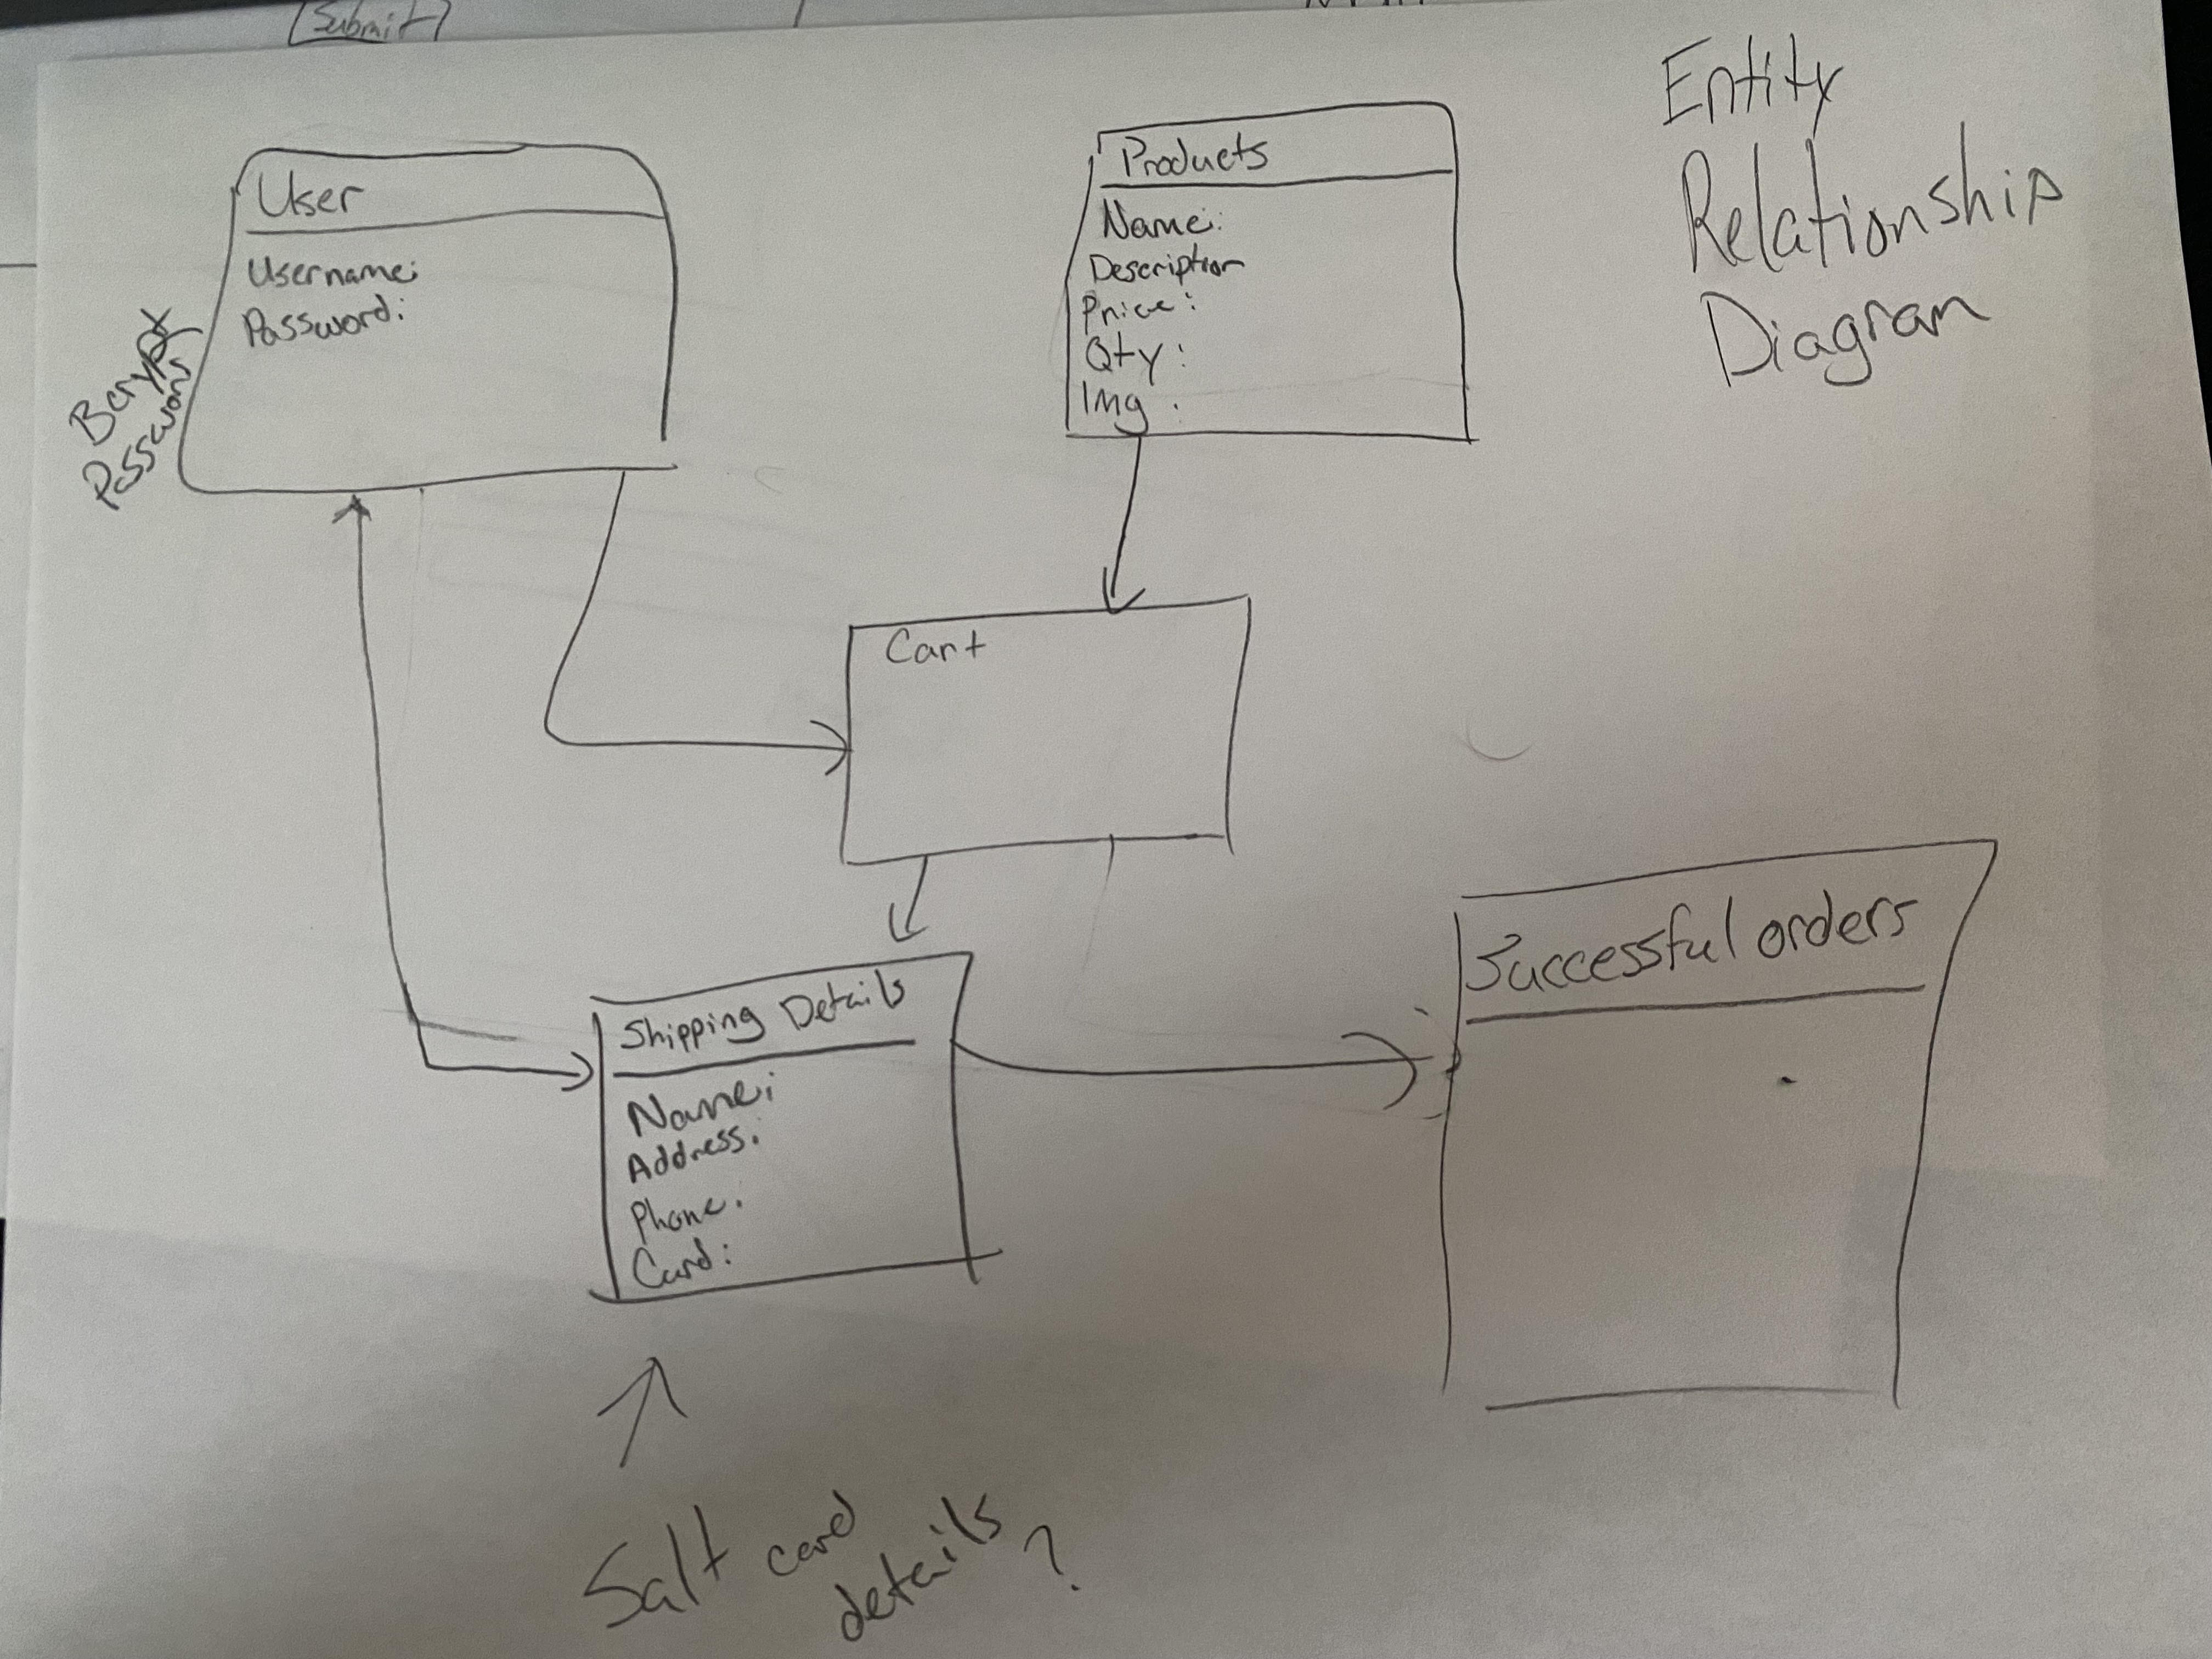 Submit
Entity
Relationship
Diagram
User
Username:
Password:
Bcrypt
Password
Products
Name:
Description
Price:
Qty:
Img:
Cart
Shipping Details
Name:
Address:
Phone:
Card:
Successful orders
Salt card
details?